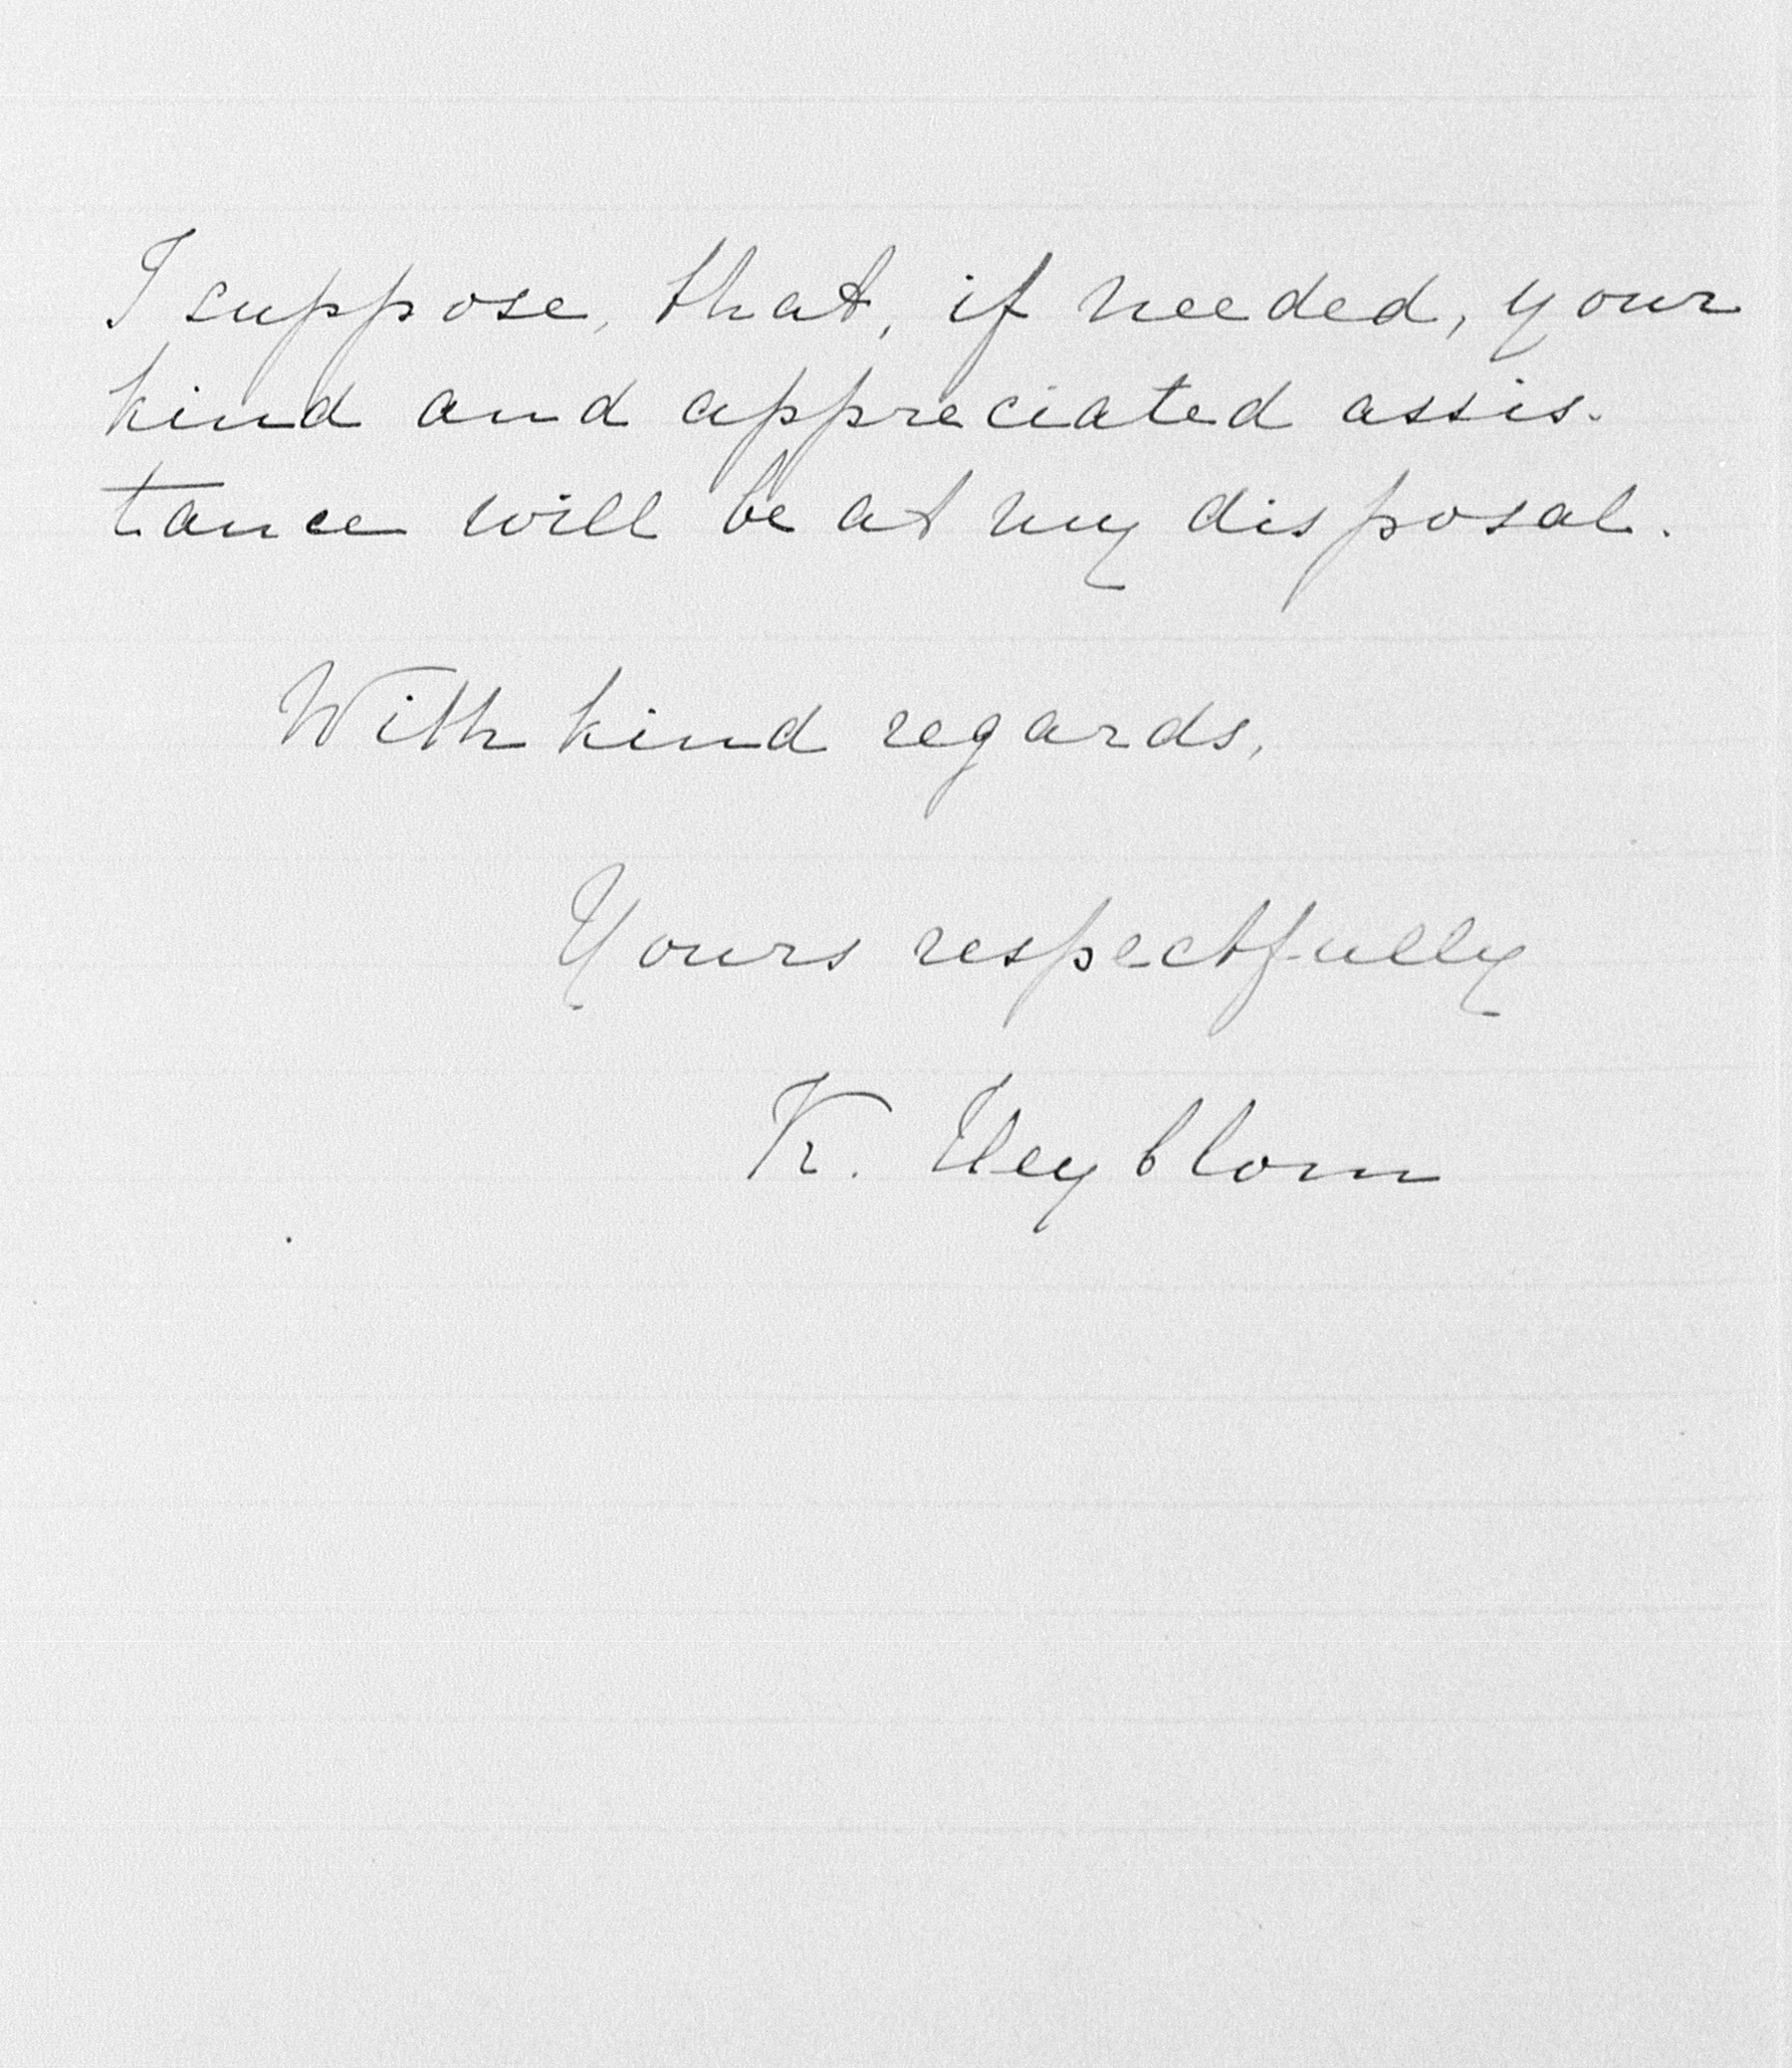 I suppose, that, if needed, your
kind and appreciated assis-
tance will be at my disposal.
With kind regards,
Yours respectfully
K.